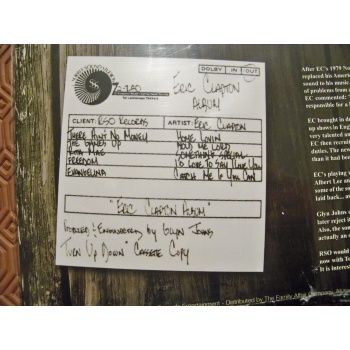 ERIC CLAPTON
ALBUM
DOLBY IN OUT
CLIENT: RSO RECORDS
ARTIST: ERIC CLAPTON
THERE AIN'T NO MONEY
THE GAMES UP
RITA MAE
FREEDOM
EVANGELINA
HOME LOVIN
HOLD ME LORD
SOMETHING SPECIAL
I'D LOVE TO SAY I LOVE YOU
CATCH ME IF YOU CAN
"ERIC CLAPTON ALBUM"
PRODUCED & ENGINEERED BY GLYN JOHNS
"TURN UP DOWN" CASSETTE COPY
After EC's 1979
replaced his American
sound to his music
EC commented:
responsible for a
EC brought in
up shows in Engl
very talented and
EC then recruited
duties. The new
than it had been
EC's playing
Albert Lee an
some of the s
laid back... a
Glyn Johns
later reject
Also, the son
actually an
RSO would
now with To
It is interest
Entertainment - Distributed by The Family